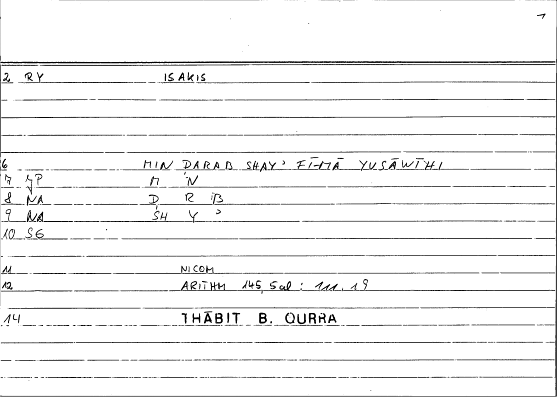 1
2 RY ISAKIS
6 MIN ḌARAB SHAY' FĪ-MĀ YUSĀWĪHI
7 JP M 'N
8 NA Ḍ R B
9 NA SH Y '
10 SG
11 NICOM
12 ARITHM 145, 5 al : 111.19
14 THĀBIT B. QURRA